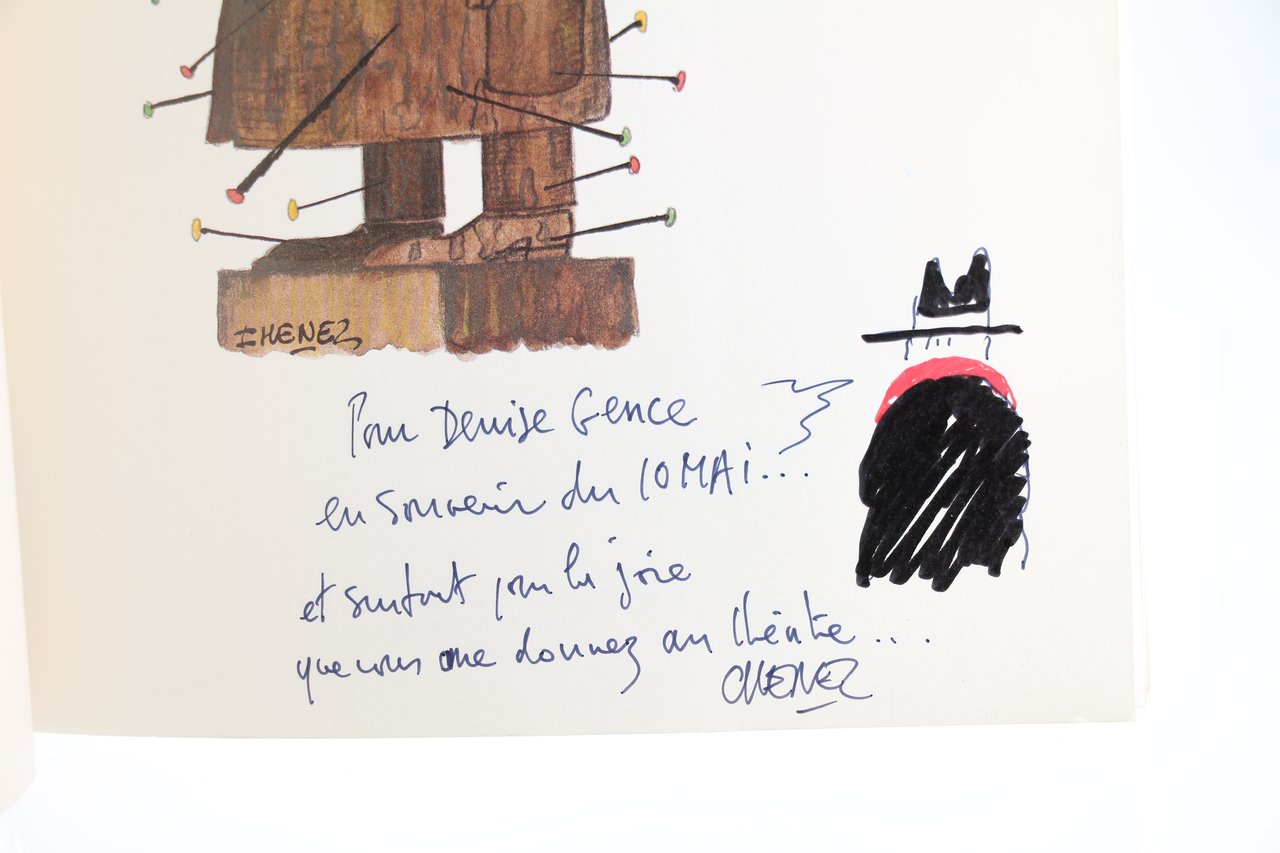 CHENEZ
Pour Denise Gence
en souvenir du 10 MAi...
et surtout pour la joie
que vous me donnez au théâtre ....
CHENEZ